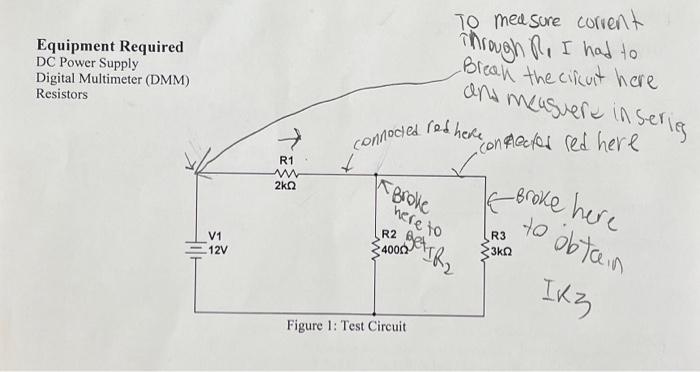 Equipment Required
DC Power Supply
Digital Multimeter (DMM)
Resistors
To measure current
Through R1 I had to
Break the circuit here
and measure in series
connected red here
connected red here
R1
2kΩ
Broke
here to
get IR2
Broke here
to obtain
IR3
V1
12V
R2
400Ω
R3
3kΩ
Figure 1: Test Circuit